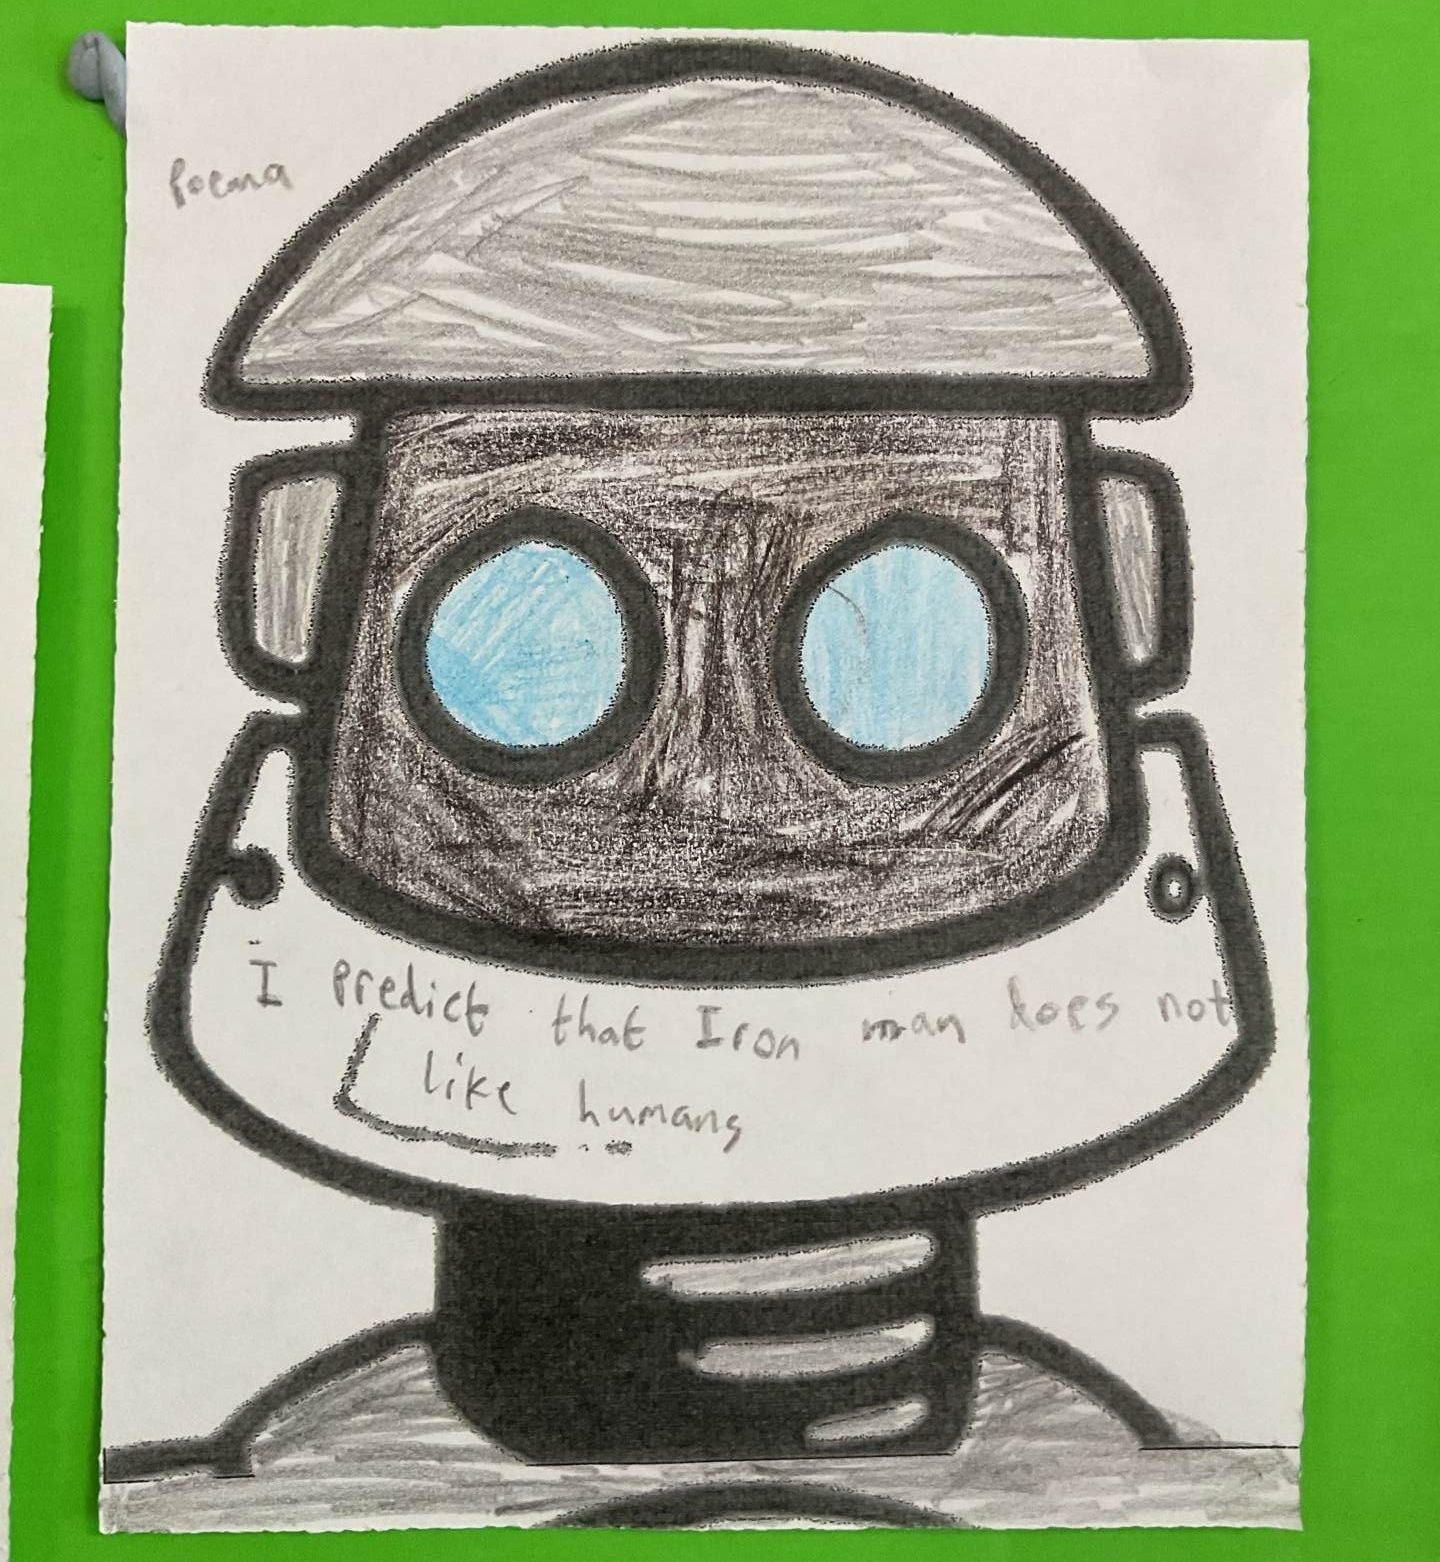 Poema
I predict that Iron man does not
like humans